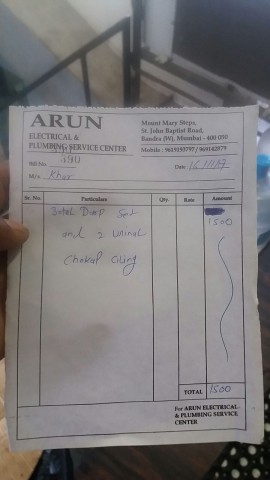 ARUN
ELECTRICAL &
PLUMBING SERVICE CENTER
Mount Mary Steps,
St. John Baptist Road,
Bandra (W), Mumbai - 400 050
Mobile : 9619193797 / 969162579
Bill No. 390
Date
M/s Khar
Sr. No. Particulars Qty. Rate Amount
1500
and 2 urinal
Chokap
TOTAL 1500
For ARUN ELECTRICAL
& PLUMBING SERVICE
CENTER